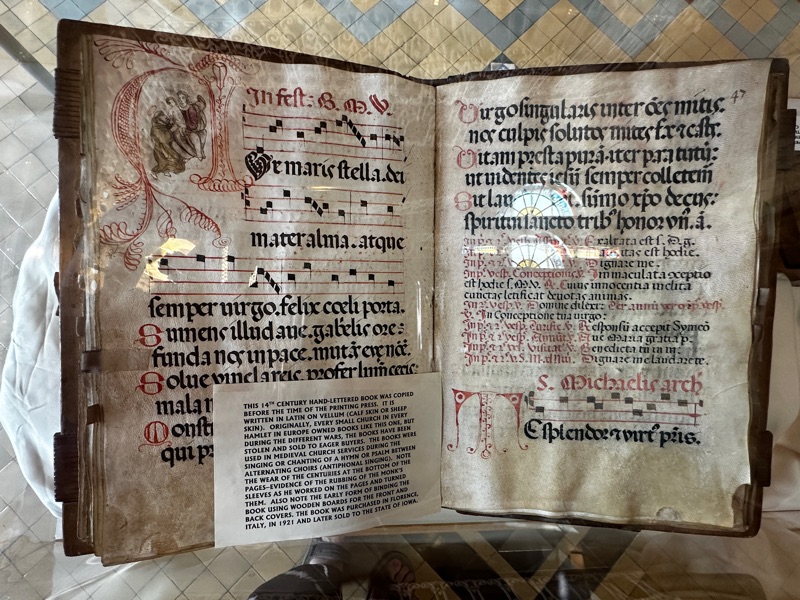 In fest: B. M. V.
Ve maris stella. dei
mater alma. atque
semper virgo. felix cœli porta.
Sumens illud ave. gabelis ore:
funda nos in pace. mutās evę nōē.
Solve vincla reis. profer lumē cecis:
mala n
Monst
qui pr
THIS 14TH CENTURY HAND-LETTERED BOOK WAS COPIED
BEFORE THE TIME OF THE PRINTING PRESS. IT IS
WRITTEN IN LATIN ON VELLUM (CALF SKIN OR SHEEP
SKIN). ORIGINALLY, EVERY SMALL CHURCH IN EVERY
HAMLET IN EUROPE OWNED BOOKS LIKE THIS ONE, BUT
DURING THE DIFFERENT WARS, THE BOOKS HAVE BEEN
STOLEN AND SOLD TO EAGER BUYERS. THE BOOKS WERE
USED IN MEDIEVAL CHURCH SERVICES DURING THE
SINGING OR CHANTING OF A HYMN OR PSALM BETWEEN
ALTERNATING CHOIRS (ANTIPHONAL SINGING). NOTE
THE WEAR OF THE CENTURIES AT THE BOTTOM OF THE
PAGES–EVIDENCE OF THE RUBBING OF THE MONK'S
SLEEVES AS HE WORKED ON THE PAGES AND TURNED
THEM. ALSO NOTE THE EARLY FORM OF BINDING THE
BOOK USING WOODEN BOARDS FOR THE FRONT AND
BACK COVERS. THE BOOK WAS PURCHASED IN FLORENCE,
ITALY, IN 1921 AND LATER SOLD TO THE STATE OF IOWA.
47
Virgo singularis inter ōēs mitis:
nos culpis solutos mites fx ⁊ cast:
Vitam presta purā. iter para tutū:
ut videntes iesū semper colletem
Sit laus sūmo xp̄o decus:
spiritui sancto trib⁹ honor vn̄. ā.
Exaltata est s. D. g.
est hodie.
Dignare me.
In p. vesp. Conceptionis. V. Immaculata cōceptio
est hodie s. M. V. R. Cuius innocentia inclita
cunctas letificat devotas animas.
In Conceptione tua virgo:
Responsū accepit Symeō
Ave Maria gratia p:
Benedicta tu in m:
Dignare me laudare te.
S. Michaelis arch
E splendor ⁊ virt⁹ pr̄is.